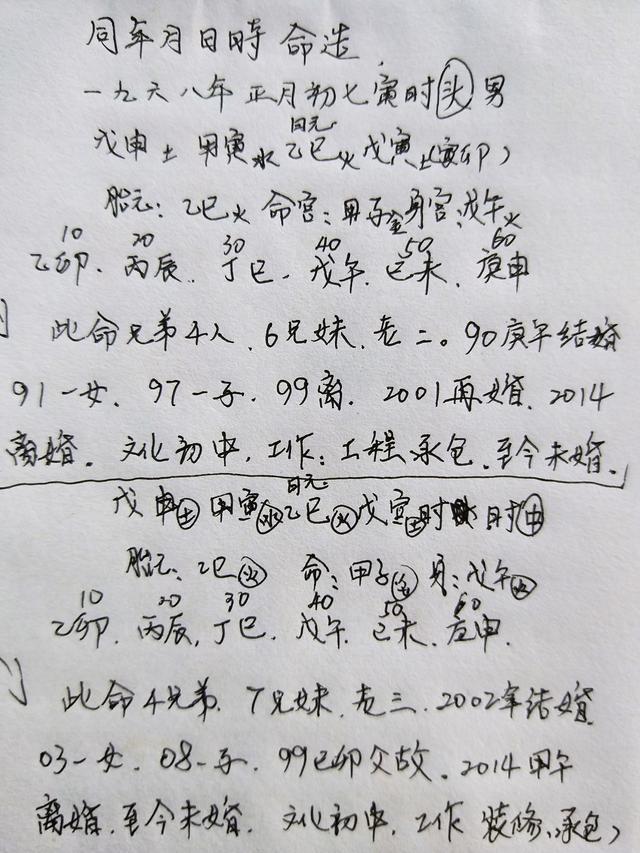 同年月日時 命造
一九六八年 正月初七寅时头 男
日元
戊申土 甲寅水 乙巳火 戊寅土(寅卯)
胎元:乙巳火 命宫:甲子金 身宫:戊午火
10 20 30 40 50 60
乙卯、丙辰、丁巳、戊午、己未、庚申
此命兄弟4人、6兄妹、老二。90庚午结婚
91一女、97一子、99离、2001再婚、2014
离婚。文化初中,工作:工程承包、至今未婚。
日元
戊申土 甲寅水 乙巳火 戊寅土时 时中
胎元:乙巳火 命:甲子金 身:戊午火
10 20 30 40 50 60
乙卯、丙辰、丁巳、戊午、己未、庚申、
此命4兄弟、7兄妹、老三、2002年结婚
03一女、08一子、99己卯父故、2014甲午
离婚、至今未婚、文化初中、工作 装修、承包